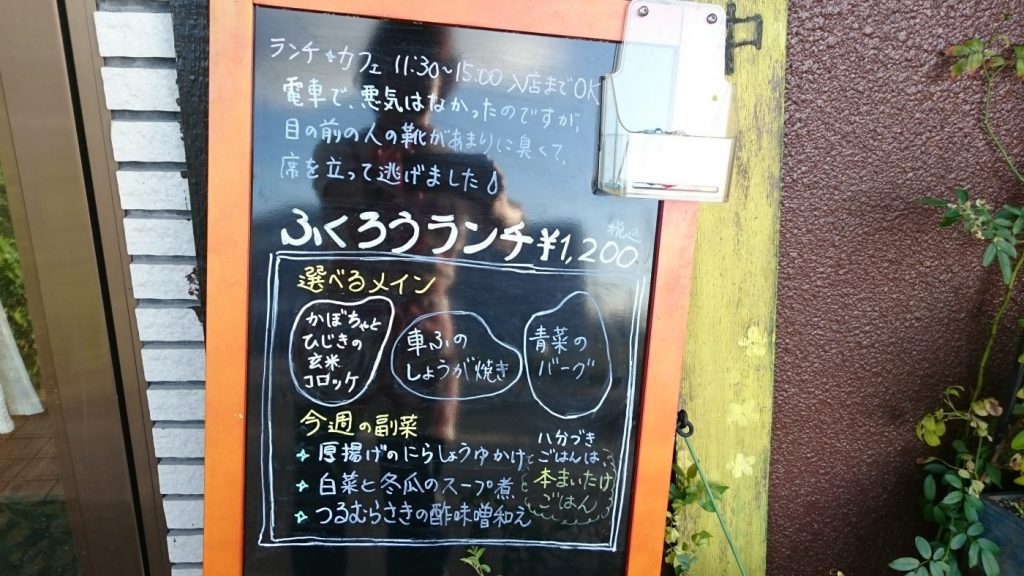 ランチ&カフェ 11:30~15:00 入店までOK
電車で、悪気はなかったのですが、
目の前の人の靴があまりに臭くて、
席を立って逃げました
ふくろうランチ ¥1,200 税込
選べるメイン
かぼちゃと
ひじきの
玄米
コロッケ
車ふの
しょうが焼き
青菜の
バーグ
今週の副菜
厚揚げのにらしょうゆかけ
白菜と冬瓜のスープ煮
つるむらさきの酢味噌和え
八分づき
ごはんは、
本まいたけ
ごはん